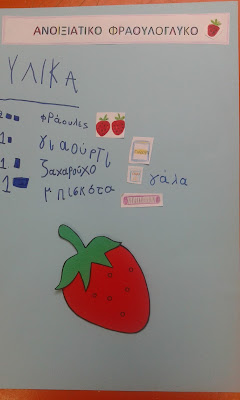 ΑΝΟΙΞΙΑΤΙΚΟ ΦΡΑΟΥΛΟΓΛΥΚΟ
ΥΛΙΚΑ
φράουλες
1 γιαούρτι
1 ζαχαρούχο γάλα
1 μπισκότα